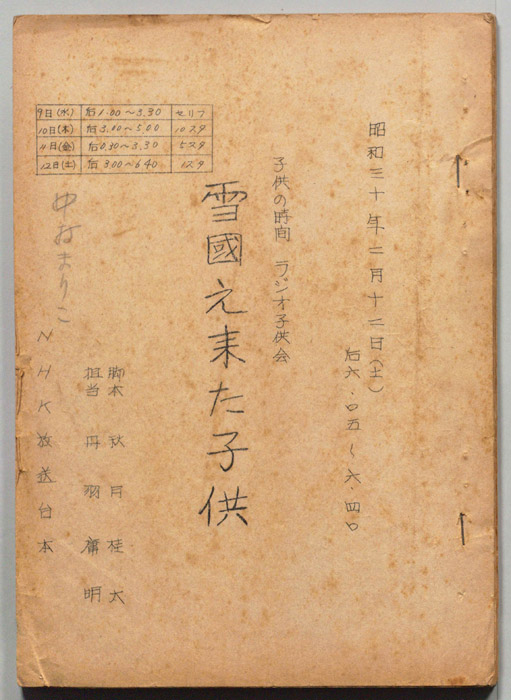 昭和三十年二月十二日(土)
后六・〇五〜六・四〇
子供の時間 ラジオ子供会
雪國え来た子供
脚本 秋月桂太
担当 丹羽 明
NHK放送台本
中村まりこ
9日(水) 后1.00〜3.30 セリフ
10日(木) 后3.00〜5.00 10スタ
11日(金) 后0.30〜3.30 5スタ
12日(土) 后3.00〜6.40 12スタ